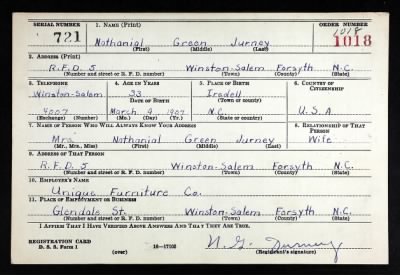 SERIAL NUMBER 1. NAME (Print) ORDER NUMBER
721 Nathanial Green Jurney 1018
(First) (Middle) (Last) 1018
2. ADDRESS (Print)
R.F.D. 5 Winston-Salem Forsyth N.C.
(Number and street or R. F. D. number) (Town) (County) (State)
3. TELEPHONE 4. AGE IN YEARS 5. PLACE OF BIRTH 6. COUNTRY OF CITIZENSHIP
Winston-Salem 33 Iredell
DATE OF BIRTH (Town or county)
4007 March 9 1907 N.C. U.S.A
(Exchange) (Number) (Mo.) (Day) (Yr.) (State or country)
7. NAME OF PERSON WHO WILL ALWAYS KNOW YOUR ADDRESS 8. RELATIONSHIP OF THAT PERSON
Mrs. Nathanial Green Jurney Wife
(Mr., Mrs., Miss) (First) (Middle) (Last)
9. ADDRESS OF THAT PERSON
R.F.D. 5 Winston-Salem Forsyth N.C.
(Number and street or R. F. D. number) (Town) (County) (State)
10. EMPLOYER'S NAME
Unique Furniture Co.
11. PLACE OF EMPLOYMENT OR BUSINESS
Glendale St. Winston-Salem Forsyth N.C.
(Number and street or R. F. D. number) (Town) (County) (State)
I AFFIRM THAT I HAVE VERIFIED ABOVE ANSWERS AND THAT THEY ARE TRUE.
REGISTRATION CARD N. G. Jurney
D. S. S. Form 1 (over) 16—17105 (Registrant's signature)